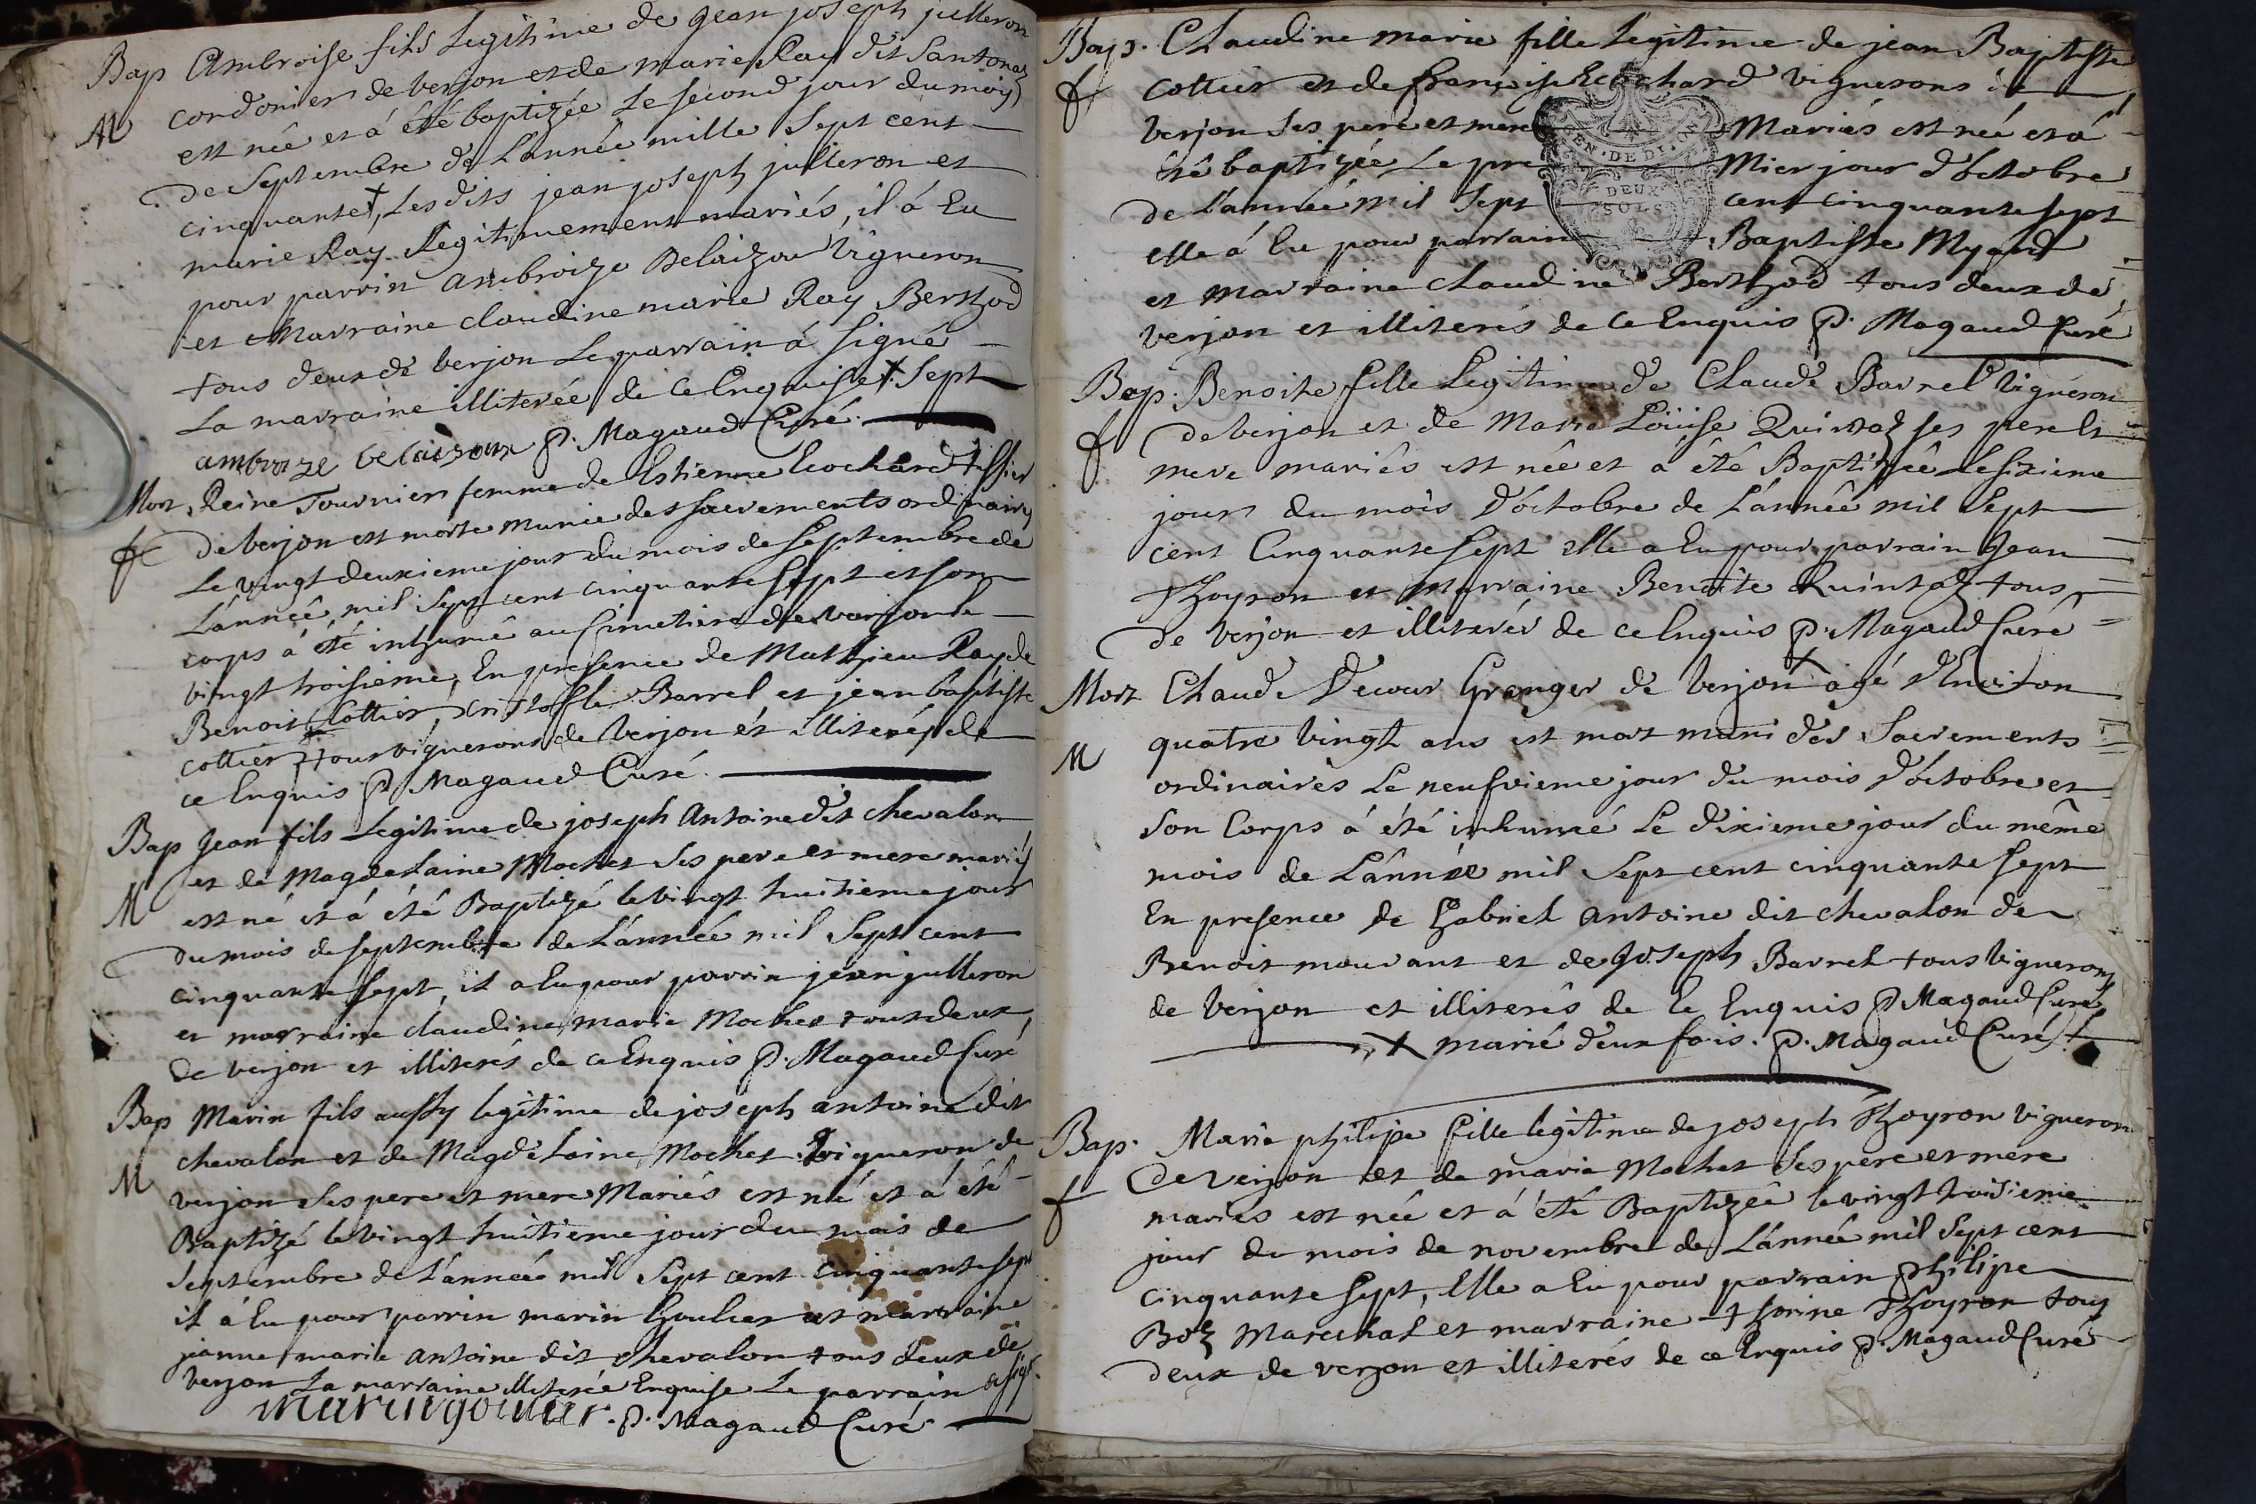 Bap Ambroise fils Legitime de jean joseph julleron
M cordonier de verjon et de marie Ray dit Santonaz
est née et á été baptizée Le second jour du mois
de Septembre de L'année mille Sept cent
cinquante +, Lesdits jean joseph julleron et
marie Ray Legitimement mariés, il á Eu
pour parrin Ambroize Delaizou Vigneron
et Marraine claudine marie Ray Berthod
tous deux de verjon Le parrain á signé
La marraine illiterée de ce Enquise +. Sept
ambroize belaizoux P. Magaud Curé.
Mort Reine Tournier femme de Estienne Ecochard tissier
f de Verjon est morte munie des sacrements ordinaires
Le vingt deuxieme jour du mois de Septembre de
L'année mil Sept cent cinquante Sept et son
corps á été inhumé au Cimetiere de verjon le
vingt troisieme, En presence de Mathieu Ray de
Benoit Cottier, cristofle Barrel et jean baptiste
cottier tous vignerons de Verjon et illiterés de
ce Enquis P. Magaud Curé.
Bap jean fils Legitime de joseph Antoine dit chevalon
et de Magdelaine Mochet Ses pere et mere mariés
M est né et á été Baptizé le vingt huitieme jour
du mois de septembre de L'année mil Sept cent
cinquante Sept, il a Eu pour parrin jean julleron
et marraine claudine marie Mochet tous deux
de verjon et illiterés de ce Enquis P. Magaud Curé
Bap Marin fils aussy legitime de joseph antoine dit
chevalon et de Magdelaine Mochet vigneron de
M verjon Ses pere et mere Mariés est né et á été
Baptizé le vingt huitieme jour du mois de
Septembre de L'année mil Sept cent cinquante sept
il á Eu pour parrin marin Goulier et marraine
jeanne marie antoine dit chevalon tous deux de
verjon La marraine illiterée Enquise Le parrain a signé
marin goulier. P. Magaud Curé
Bap. Claudine marie fille Legitime de jean Baptiste
f cottier et de françoise Ecochard vignerons de
verjon Ses pere et mere Mariés est née et á
été baptizée Le pre Mier jour d'octobre
de L'année mil Sept cent cinquante sept
elle á Eu pour parrain Baptiste Myard
et marraine claudine Berthod tous deux de
verjon et illiterés de ce Enquis P. Magaud Curé
GEN. DE DI
DEUX
SOLS
Bap. Benoite fille Legitime de Claude Barrel Vigneron
f de verjon et de Marie Loüise Quintaz ses pere et
mere mariés est née et á été Baptizée Le sixieme
jour du mois d'octobre de L'année mil Sept
cent Cinquante Sept elle a Eu pour parrain Jean
Thoyron et Marraine Benoite Quintaz tous
de verjon et illiterés de ce Enquis P. Magaud Curé
Mort Claude Decour Granger de Verjon + agé d'Environ
M quatre Vingt ans est mort muni des Sacrements
ordinaires Le neufvieme jour du mois d'octobre et
Son Corps á été inhumé Le dixieme jour du même
mois de L'année mil Sept cent cinquante sept
En presence de Gabriel antoine dit chevalon de
Benoit mouvant et de joseph Barrel tous vignerons
de Verjon et illiterés de Ce Enquis P. Magaud Curé
+ marié deux fois. P. Magaud Curé +
Bap. Marie philipe fille legitime de joseph Thoyron vigneron
f de verjon et de marie Mochet Ses pere et mere
mariés est née et á été Baptizée le vingt troisieme
jour du mois de novembre de L'année mil Sept cent
cinquante Sept, Elle a Eu pour parrain philipe
Marechal et marraine Thoyron tous
deux de verjon et illiterés de ce Enquis P. Magaud Curé